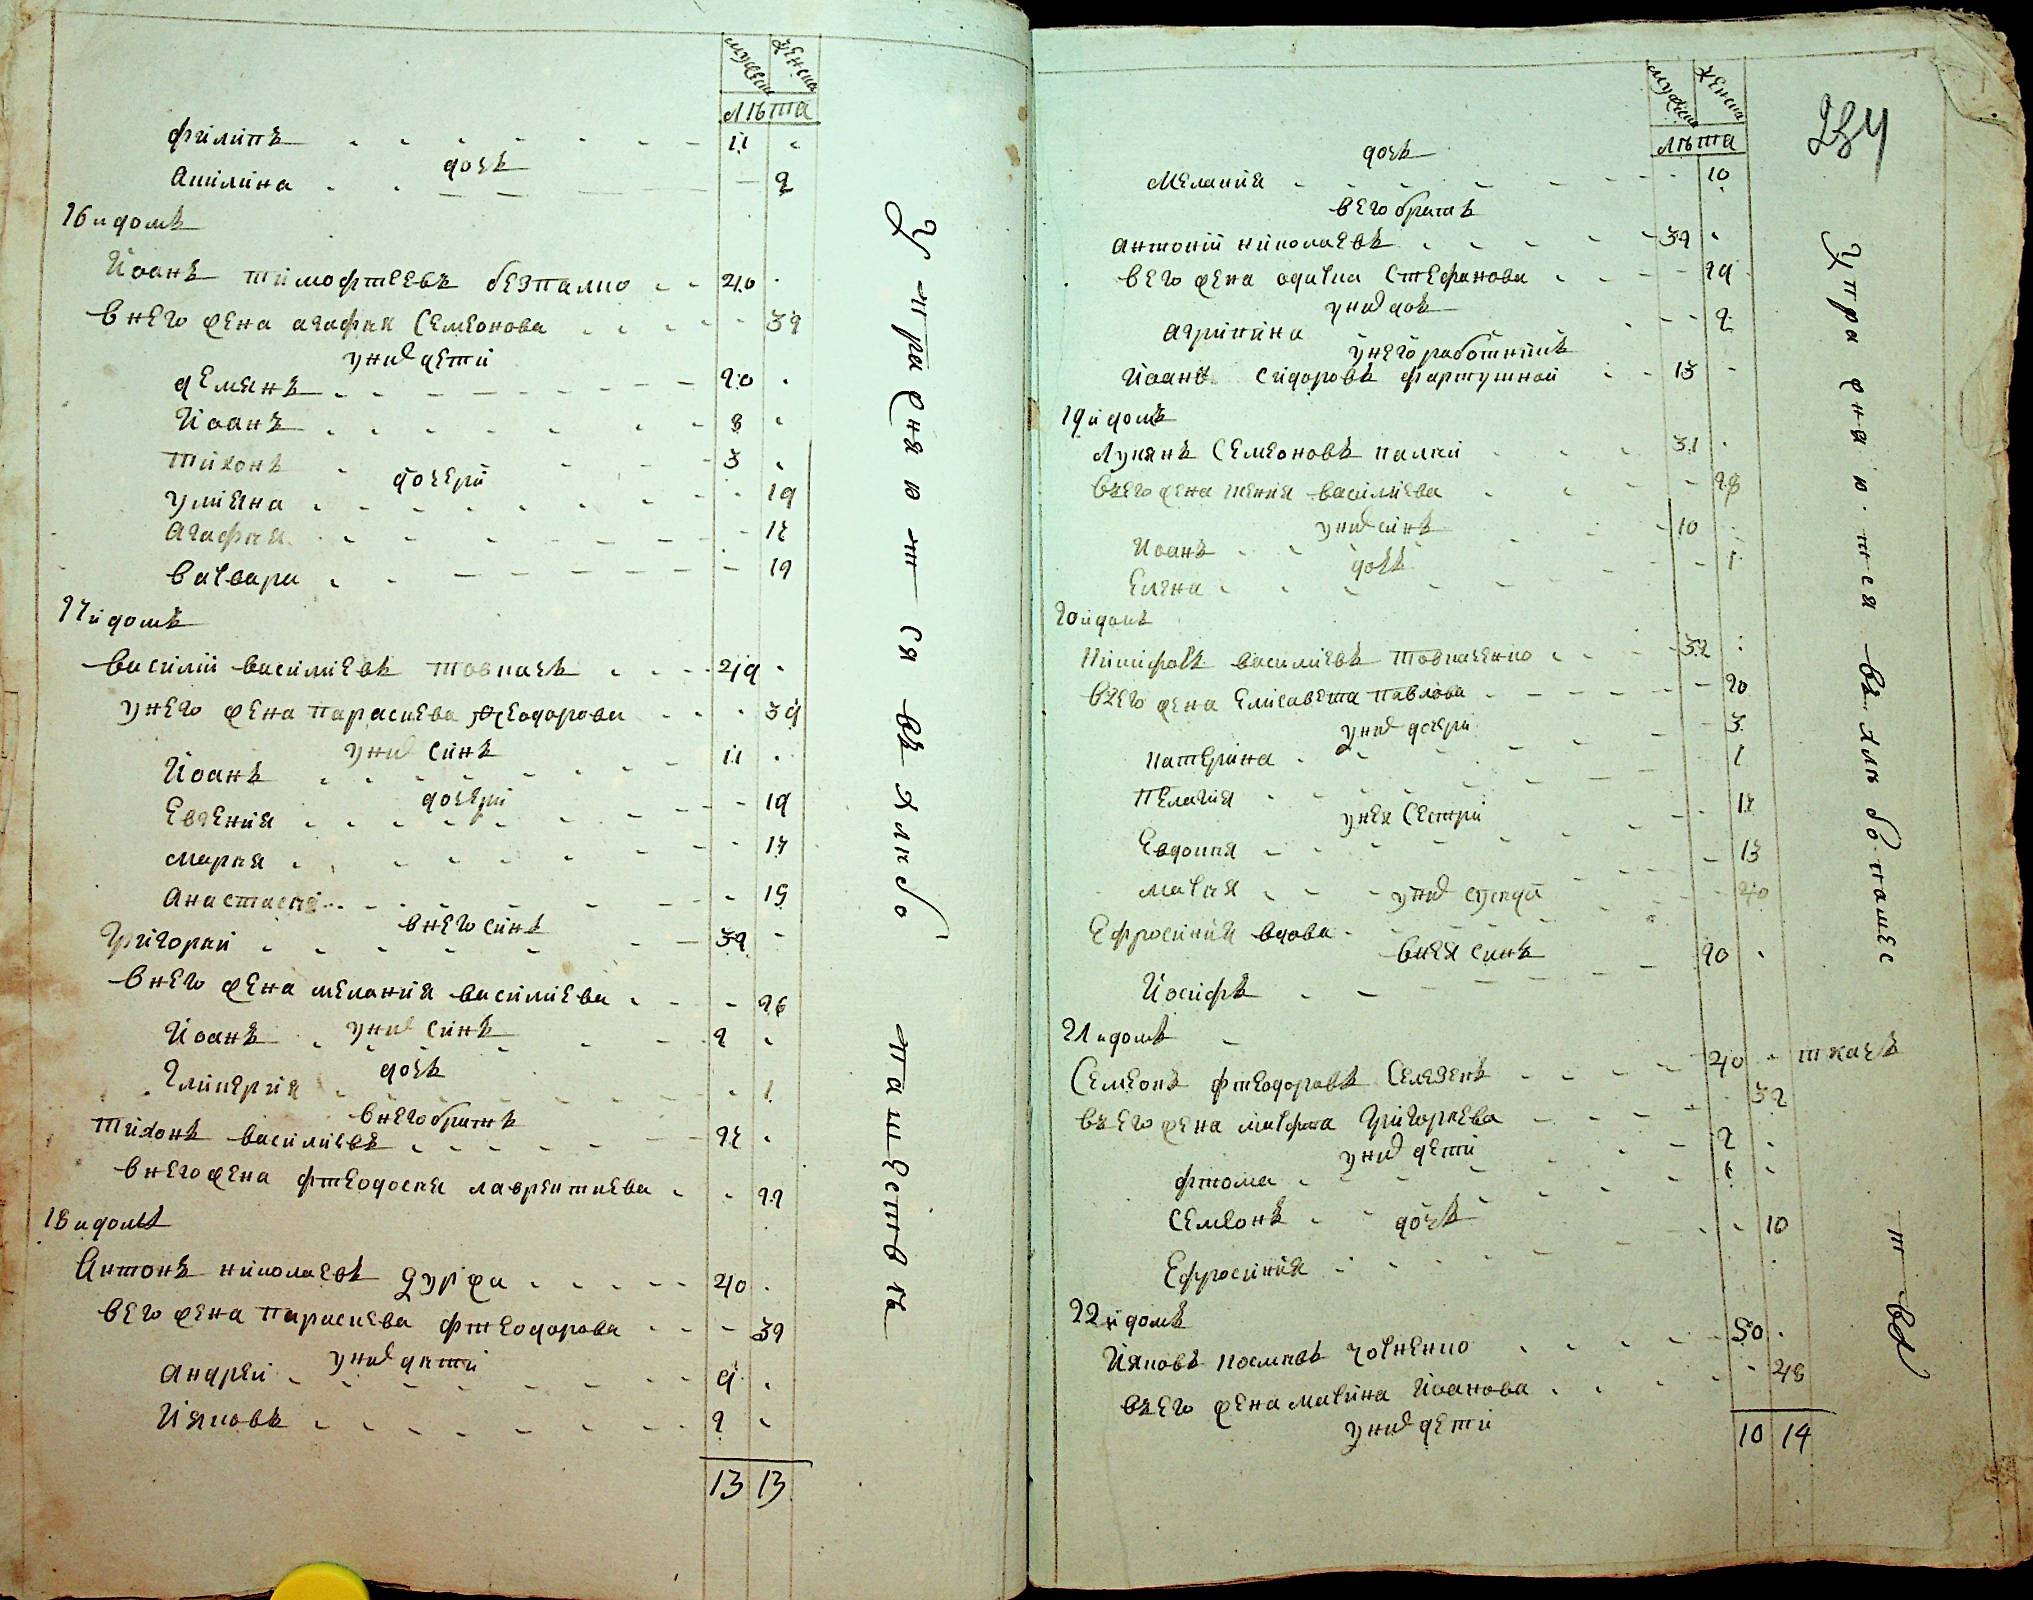 мужеска женска
лѣта
филипъ 11
дочь
акилина 2
16 й домъ
Иоанъ тимофѣевъ безпалко 40
в него жена агафия Семеонова 32
у них дети
демянъ 20
Иоанъ 8
тихонъ 3
дочери
улияна 19
Агафия 15
варвара 12
17 й домъ
василий василиевъ товкачъ 49
у него жена параскева Феодорова 39
у них синъ
Иоанъ 11
дочери
Евгения 19
мария 17
Анастасия 15
в него синъ
Григорий 32
в него жена мелания василиева 26
у них синъ
Иоанъ 2
дочь
Гликерия 1
в него братъ
тихонъ василиевъ 25
в него жена фтеодосия лаврентиева 22
18 й домъ
Антонъ николаевъ журжа 40
в его жена параскева фтеодорова 39
у них дѣти
Андрей 9
Ияковъ 2
13 13
Упражняются въ хлѣбо
пашествѣ
234
мужеска женска
лѣта
дочь
Мелания 10
в его братъ
антоний николаевъ 32
в его жена одарка Стефанова 29
у них дочь
агрипина 2
у него работникъ
Иоанъ Сидоровъ фартушной 13
19 й домъ
Лукянъ Семеоновъ палий 31
въ его жена ксения василиева 28
у них синъ
Иоанъ 10
дочь
Елена 1
20 й домъ
Никифоръ василиевъ товкаченко 32
въ его жена Елисавета павлова 20
у них дочери
катерина 3
Пелагия 1
у нея Сестри
Евдокия 15
мария 13
Ефросиния вдова 40
в нея синъ
Иосифъ 20
21 й домъ
Семеонъ фтеодоровъ Селезень 40 ткачъ
въ его жена марфа Григориева 32
у них дети
фтома 2
Семеонъ
дочь
Ефросиния 10
22 й домъ
Ияковъ козмевъ 50
въ его жена марина Иоанова 48
у них дети
10 14
Упражняются въ хлѣбопашес
твѣ